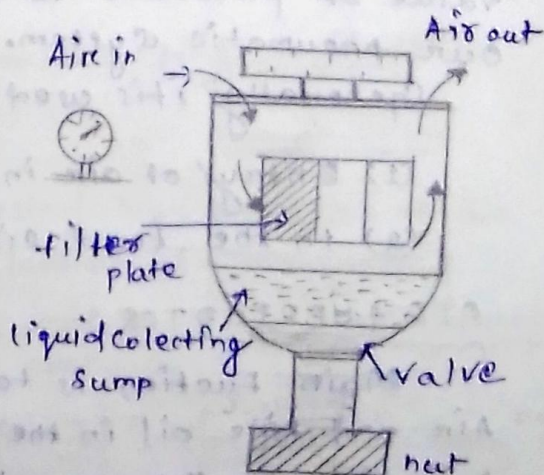 Air in
Air out
filter
plate
liquid colecting
sump
valve
nut